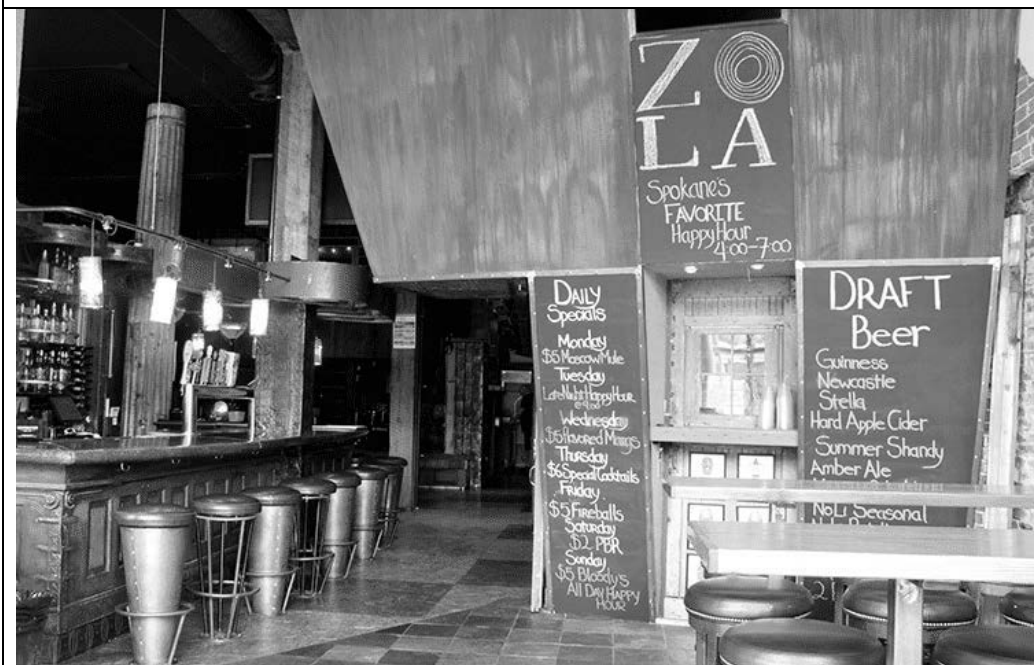 ZO
LA
Spokane's
FAVORITE
Happy Hour
4:00-7:00
DAILY
Specials
Monday
$5 Moscow Mule
Tuesday
Late Night Happy Hour
Wednesday
$5 flavored Margs
Thursday
$6 Special Cocktails
Friday
$5 Fireballs
Saturday
$2 PBR
Sunday
$5 Bloody's
All Day Happy
Hour
DRAFT
Beer
Guinness
Newcastle
Stella
Hard Apple Cider
Summer Shandy
Amber Ale
NoLi Seasonal